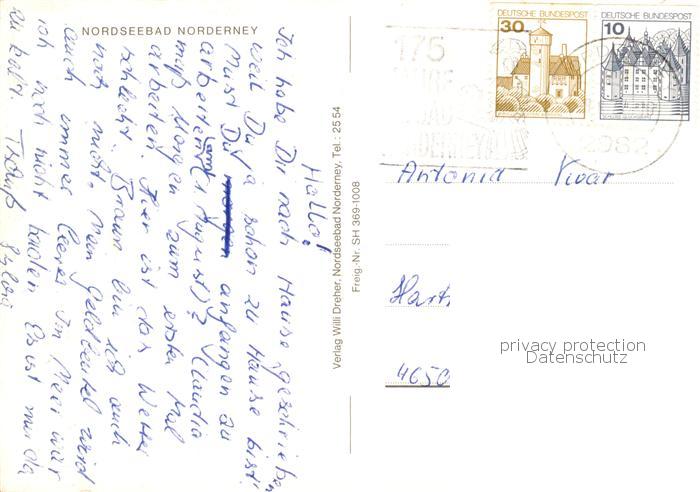 NORDSEEBAD NORDERNEY
Hallo!
Ich habe Dir nach Hause geschrieben
weil Du ja schon zu Hause bist.
Mußt Du morgen anfangen zu
arbeiten (1. August)? Claudia
muß Morgen zum ersten Mal
arbeiten. Hier ist das Wetter
schlecht. Braun bin ich auch
noch nicht. Mein Geldbeutel wird
auch immer leerer. Im Meer war
ich noch nicht baden. Es ist mir da
zu kalt. Tschüß
Sylvia
Verlag Willi Dreher, Nordseebad Norderney, Tel.: 25 54
Freig.-Nr. SH 369-1008
DEUTSCHE BUNDESPOST
30
DEUTSCHE BUNDESPOST
10
SCHLOSS GLÜCKSBURG
175
JAHRE
BAD
NORDERNEY
2982
Antonia Vivar
Hart
4650
privacy protection
Datenschutz